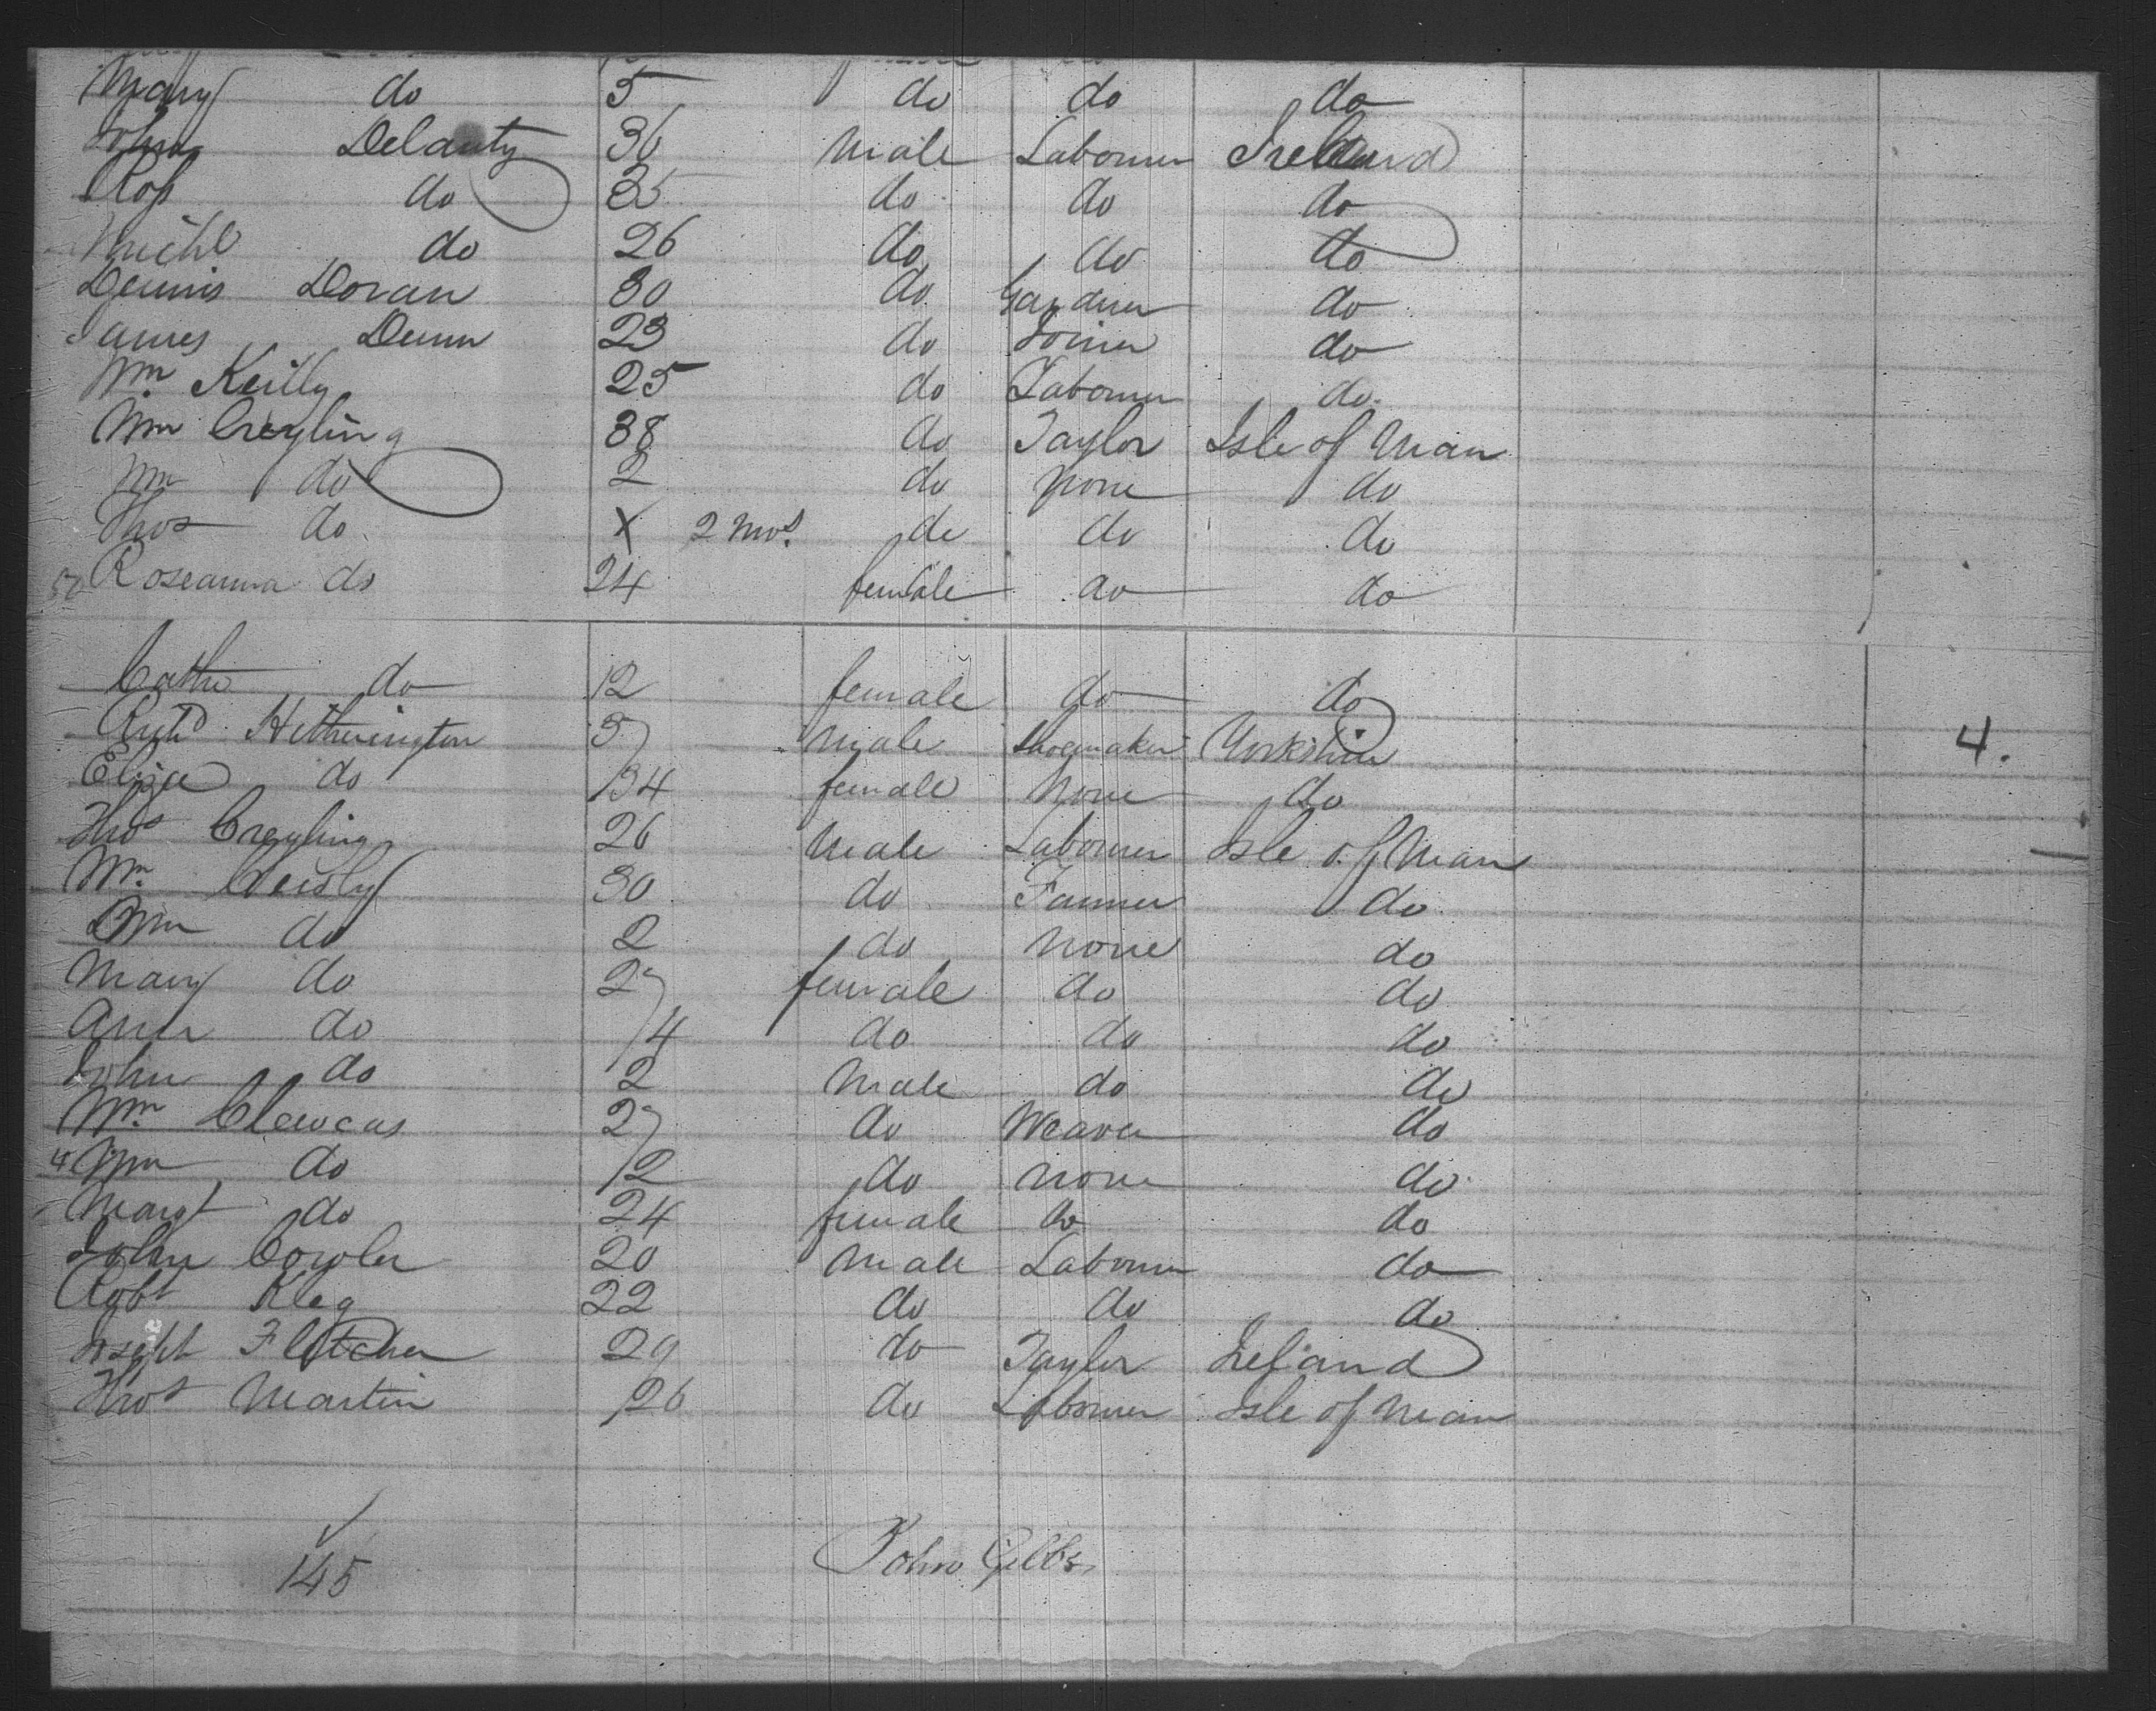 Mary do 5 do do do
John Delanty 36 male Labourer Ireland
Ross do 35 do do do
Michl do 26 do do do
Dennis Doran 30 do Gardner do
James Dunn 23 do Joiner do
Wm Keilly 25 do Labourer do
Wm Creyling 38 do Taylor Isle of Man
Wm do 2 do None do
Thos do X 2 mos. do do do
Roseanna do 24 female do do
Cathe do 12 female do do
Richd Hetherington 37 Male Shoemaker Yorkshire
4.
Eliza do 34 female None do
Thos Creyling 26 Male Labourer Isle of Man
Wm 30 do Farmer do
Wm do 2 do None do
Mary do 27 female do do
Ann do 4 do do do
John do 2 Male do do
Wm Clewcas 27 do Weaver do
Wm do 2 do none do
Margt do 24 female do do
John Cowler 20 Male Labourer do
Robt Kleg 22 do do do
Joseph Fletcher 29 do Taylor Ireland
Thos Martin 26 do Labourer Isle of Man
145
John Gibbs